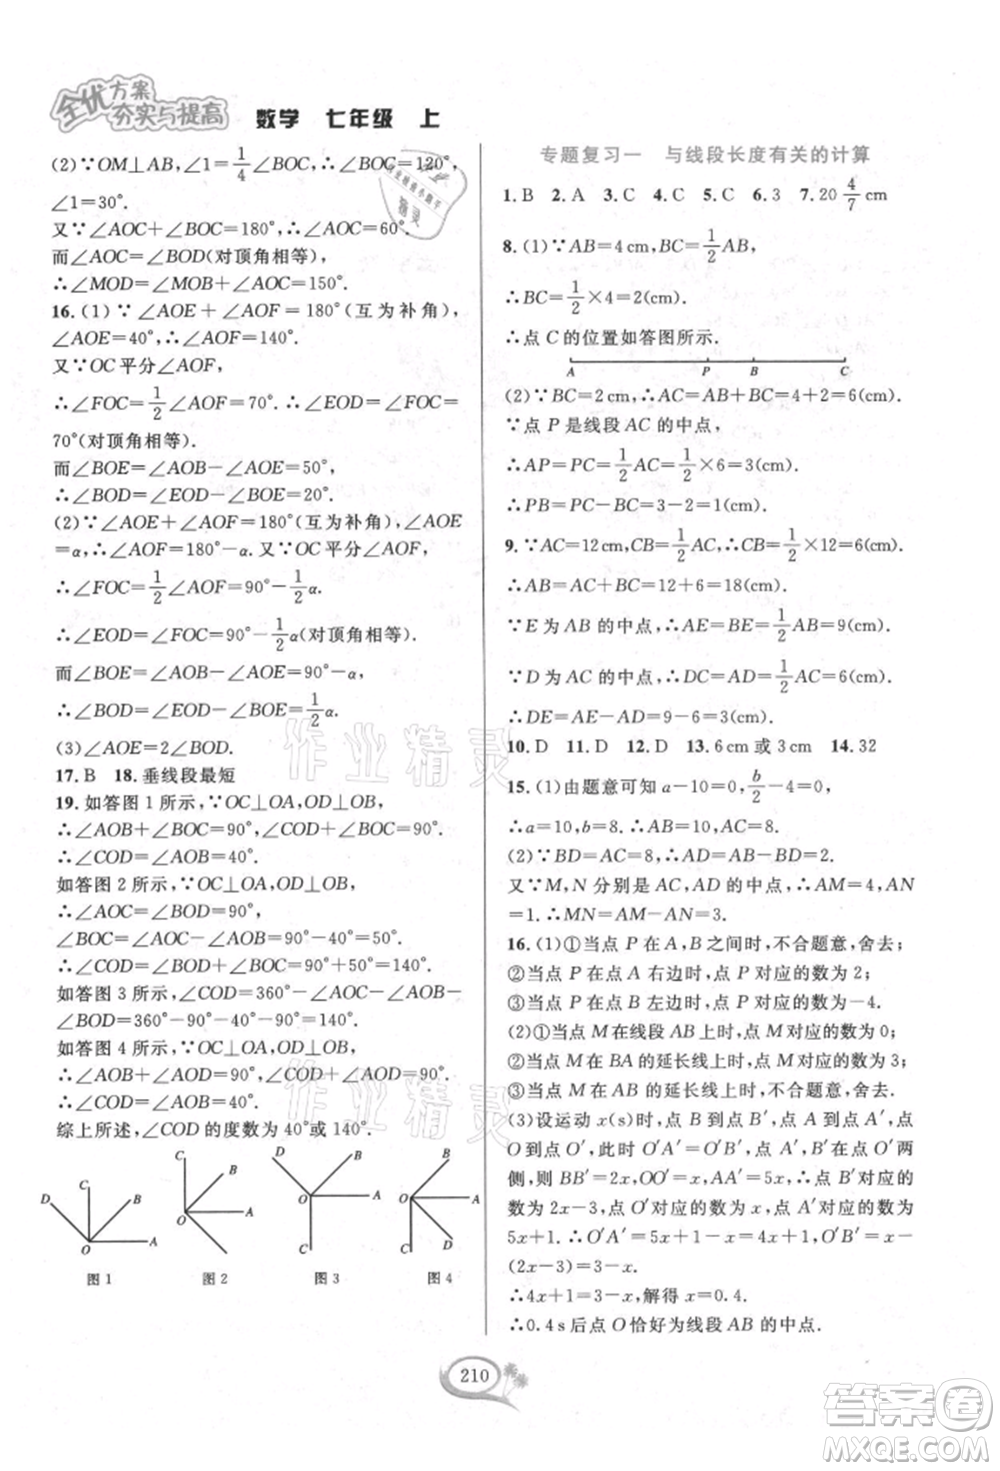 全优方案
夯实与提高
数学 七年级 上
(2)∵OM⊥AB,∠1=1/4∠BOC,∴∠BOC=120°,
∠1=30°.
又∵∠AOC+∠BOC=180°,∴∠AOC=60°.
而∠AOC=∠BOD(对顶角相等),
∴∠MOD=∠MOB+∠AOC=150°.
16.(1)∵∠AOE+∠AOF=180°(互为补角),
∠AOE=40°,∴∠AOF=140°.
又∵OC平分∠AOF,
∴∠FOC=1/2∠AOF=70°.∴∠EOD=∠FOC=
70°(对顶角相等).
而∠BOE=∠AOB-∠AOE=50°,
∴∠BOD=∠EOD-∠BOE=20°.
(2)∵∠AOE+∠AOF=180°(互为补角),∠AOE
=α,∴∠AOF=180°-α.又∵OC平分∠AOF,
∴∠FOC=1/2∠AOF=90°-1/2α.
∴∠EOD=∠FOC=90°-1/2α(对顶角相等).
而∠BOE=∠AOB-∠AOE=90°-α,
∴∠BOD=∠EOD-∠BOE=1/2α.
(3)∠AOE=2∠BOD.
17.B 18.垂线段最短
19.如答图1所示,∵OC⊥OA,OD⊥OB,
∴∠AOB+∠BOC=90°,∠BOC+∠COD=90°.
∴∠COD=∠AOB=40°.
如答图2所示,∵OC⊥OA,OD⊥OB,
∴∠AOC=90°,∠BOD=90°.
∠BOC=∠AOC-∠AOB=90°-40°=50°.
∴∠COD=∠BOD+∠BOC=90°+50°=140°.
如答图3所示,∠COD=360°-∠AOC-∠AOB-
∠BOD=360°-90°-40°-90°=140°.
如答图4所示,∵OC⊥OA,OD⊥OB,
∴∠AOB+∠AOD=90°,∠COD+∠AOD=90°.
∴∠COD=∠AOB=40°.
综上所述,∠COD的度数为40°或140°.
D C B O A
图1
C B O A D
图2
D B O A C
图3
C B O A D
图4
专题复习一 与线段长度有关的计算
1.B 2.A 3.C 4.C 5.C 6.3 7.20 4/7 cm
8.(1)∵AB=4cm,BC=1/2AB,
∴BC=1/2×4=2(cm).
∴点C的位置如答图所示.
A P B C
(2)∵BC=2cm,∴AC=AB+BC=4+2=6(cm).
∵点P是线段AC的中点,
∴AP=PC=1/2AC=1/2×6=3(cm).
∴PB=PC-BC=3-2=1(cm).
9.∵AC=12cm,CB=1/2AC,∴CB=1/2×12=6(cm).
∴AB=AC+BC=12+6=18(cm).
∵E为AB的中点,∴AE=BE=1/2AB=9(cm).
∵D为AC的中点,∴DC=AD=1/2AC=6(cm).
∴DE=AE-AD=9-6=3(cm).
10.D 11.D 12.D 13.6cm或3cm 14.32
15.(1)由题意可知a-10=0,b/2-4=0,
∴a=10,b=8.∴AB=10,AC=8.
(2)∵BD=AC=8,∴AD=AB-BD=2.
又∵M,N分别是AC,AD的中点,∴AM=4,AN
=1.∴MN=AM-AN=3.
16.(1)①当点P在A,B之间时,不合题意,舍去;
②当点P在点A右边时,点P对应的数为2;
③当点P在点B左边时,点P对应的数为-4.
(2)①当点M在线段AB上时,点M对应的数为0;
②当点M在BA的延长线上时,点M对应的数为3;
③当点M在AB的延长线上时,不合题意,舍去.
(3)设运动x(s)时,点B到点B′,点A到点A′,点
O到点O′,则O′A′=O′B′,点A′,B′在点O′两
侧,则BB′=2x,OO′=x,AA′=5x,∴点B′对应的
数为2x-3,点O′对应的数为x,点A′对应的数为
5x+1.∴O′A′=5x+1-x=4x+1,O′B′=x-
(2x-3)=3-x.
∴4x+1=3-x,解得x=0.4.
∴0.4s后点O恰好为线段AB的中点.
210
作业精灵
作业精灵
答案圈
MXQE.COM